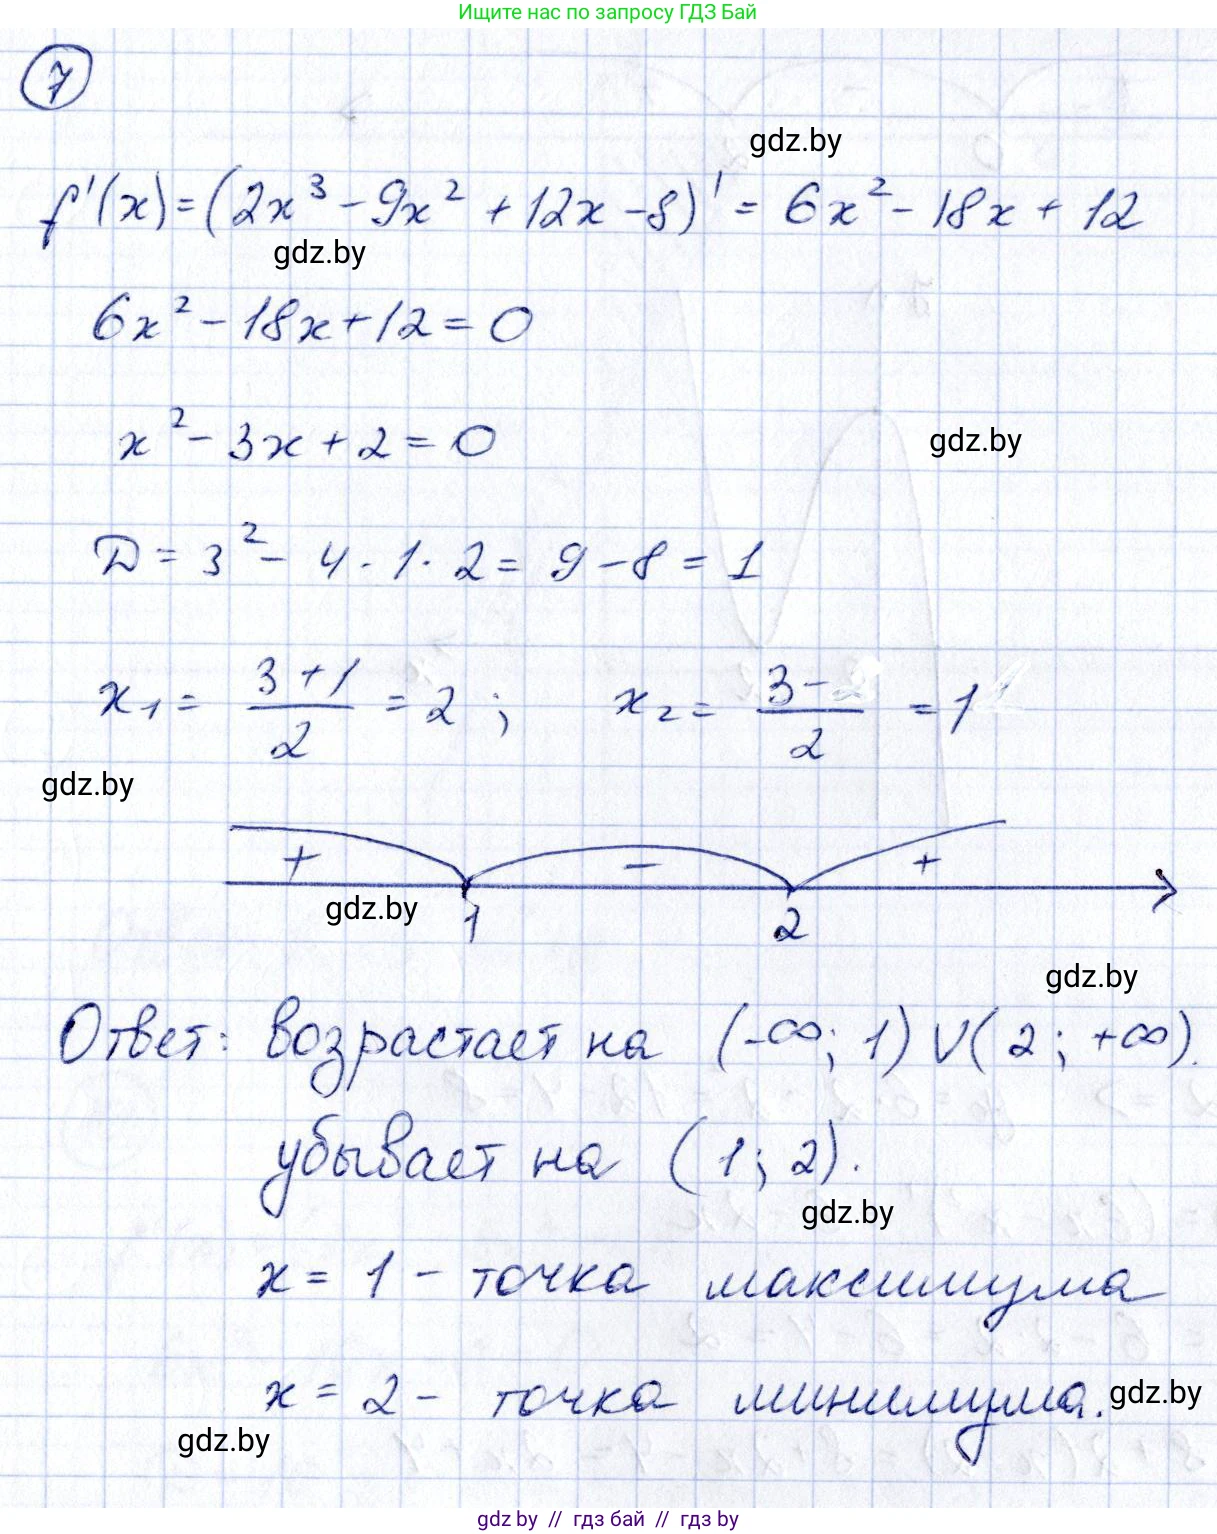 Ищите нас по запросу ГДЗ Бай
7
gdz.by
f'(x) = (2x³ - 9x² + 12x - 8)' = 6x² - 18x + 12
gdz.by
6x² - 18x + 12 = 0
x² - 3x + 2 = 0
gdz.by
D = 3² - 4 · 1 · 2 = 9 - 8 = 1
x₁ = (3 + 1)/2 = 2 ; x₂ = (3 -)/2 = 1
gdz.by
+ - +
gdz.by
1 2
gdz.by
Ответ: возрастает на (-∞; 1) ∪ (2; +∞).
убывает на (1; 2).
gdz.by
x = 1 - точка максимума
x = 2 - точка минимума.
gdz.by
gdz.by
gdz.by // гдз бай // гдз by